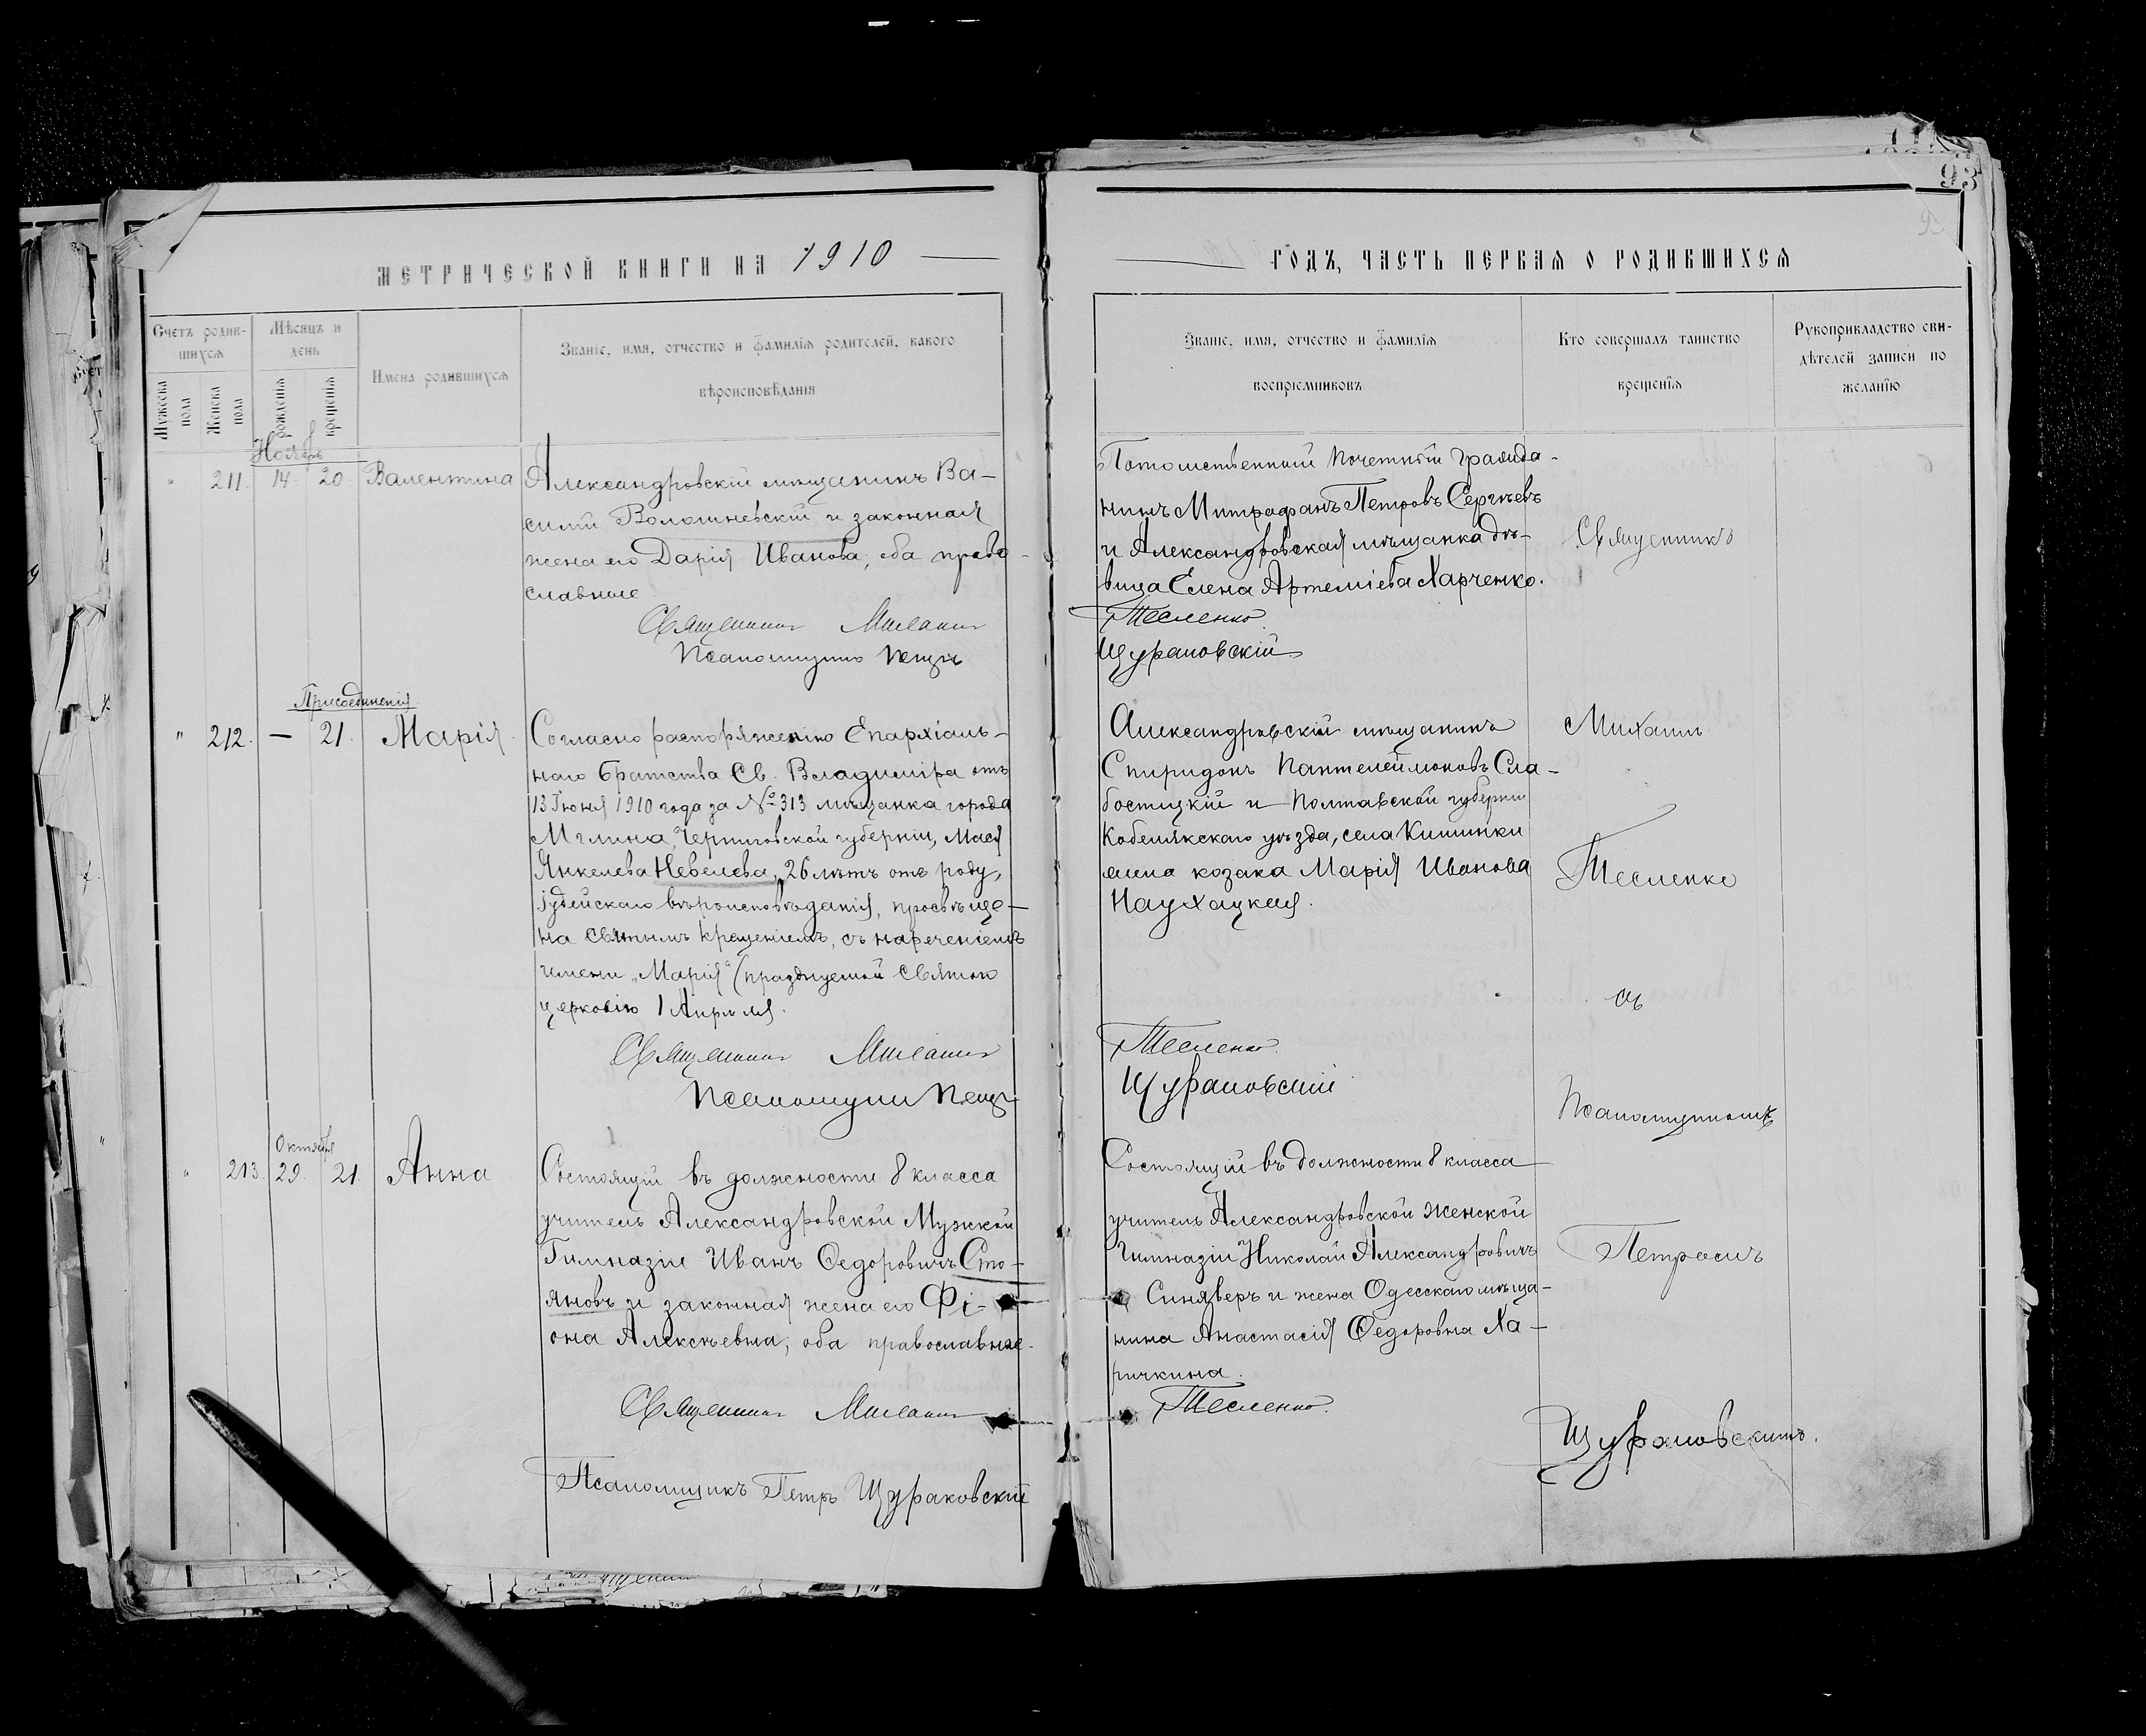 93
МЕТРИЧЕСКОЙ КНИГИ НА 1910
ГОДЪ, ЧАСТЬ ПЕРВАЯ О РОДИВШИХСЯ
Счетъ родив-
шихся
Мужеска
пола
Женска
пола
Мѣсяцъ и
день
рожденія
крещенія
Имена родившихся
Званіе, имя, отчество и фамилія родителей, какого
вѣроисповѣданія
Званіе, имя, отчество и фамилія
воспріемниковъ
Кто совершалъ таинство
крещенія
Рукоприкладство сви-
дѣтелей записи по
желанію
Ноябрь
" 211. 14. 20. Валентина
Александровскій мѣщанинъ Ва-
силій Волошневскій и законная
жена его Дарія Иванова, оба право-
славные
Священникъ
Псаломщикъ
Потомственный Почетный Гражда-
нинъ Митрофанъ Петровъ Сергѣевъ
и Александровская мѣщанка дѣ-
вица Елена Артеміева Харченко.
Тесленко.
Щураковскій
Священникъ
Присоединенія
" 212. — 21. Марія
Согласно распоряженію Епархіаль-
наго Братства Св. Владиміра отъ
13 Іюня 1910 года за № 313 мѣщанка города
Мглина, Черниговской губерніи, Мася
Янкелева Невелева, 26 лѣтъ отъ роду,
Іудейскаго вѣроисповѣданія, просвѣще-
на святымъ крещеніемъ, съ нареченіемъ
имени „Марія" (празднуемой святою
церковію 1 Апрѣля.
Священникъ
Псаломщикъ
Александровскій мѣщанинъ
Спиридонъ Пантелеймоновъ Сла-
бостицкій и Полтавской губерніи
Кобелякскаго уѣзда, села Кишинки
жена козака Марія Иванова
Наухацкая.
Тесленко
Щураковскій
Михаилъ
Тесленко
съ
Псаломщикомъ
Октября
" 213. 29. 21. Анна
Состоящій въ должности 8 класса
учитель Александровской Мужской
Гимназіи Иванъ Федоровичъ Сто-
яновъ и законная жена его Фі-
она Алексѣевна, оба православные.
Священникъ
Псаломщикъ Петръ Щураковскій
Состоящій въ должности 8 класса
учитель Александровской Женской
Гимназіи Николай Александровичъ
Синяверъ и жена Одесскаго мѣща-
нина Анастасія Федоровна Ха-
ричкина.
Тесленко.
Петромъ
Щураковскимъ.